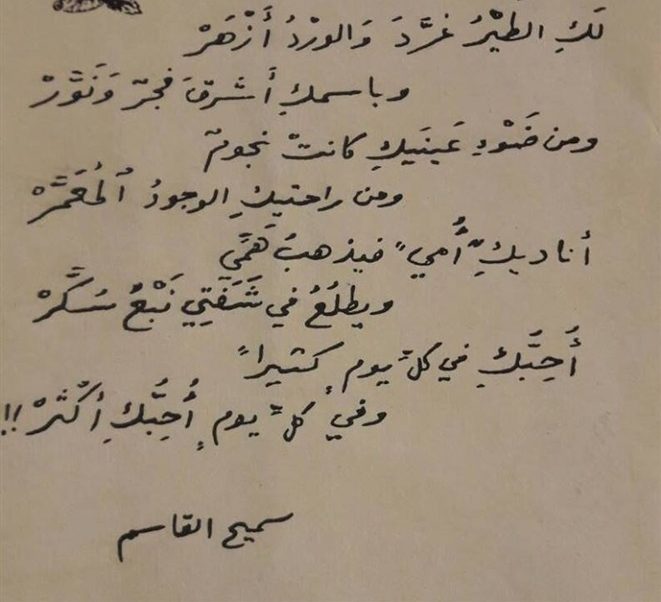 لَكِ الطَيْرُ غرَّدَ وَالورْدُ أَزْهَرْ
وباسمكِ أَشرقَ فجرٌ وَنَوَّرْ
ومن ضَوْءِ عَينَيكِ كانتْ نجومٌ
ومن راحتيكِ الوجودُ المُعَمَّرْ
أناديكِ "أُمي" فيذهبُ هَمَّي
ويطلَعُ في شَفَتِي نَبْعُ سُكَّرْ
أُحِبُّكِ في كلِّ يومٍ كثيراً
وفي كلِّ يومٍ أُحِبُّكِ أكْثَرْ !!
سميح القاسم